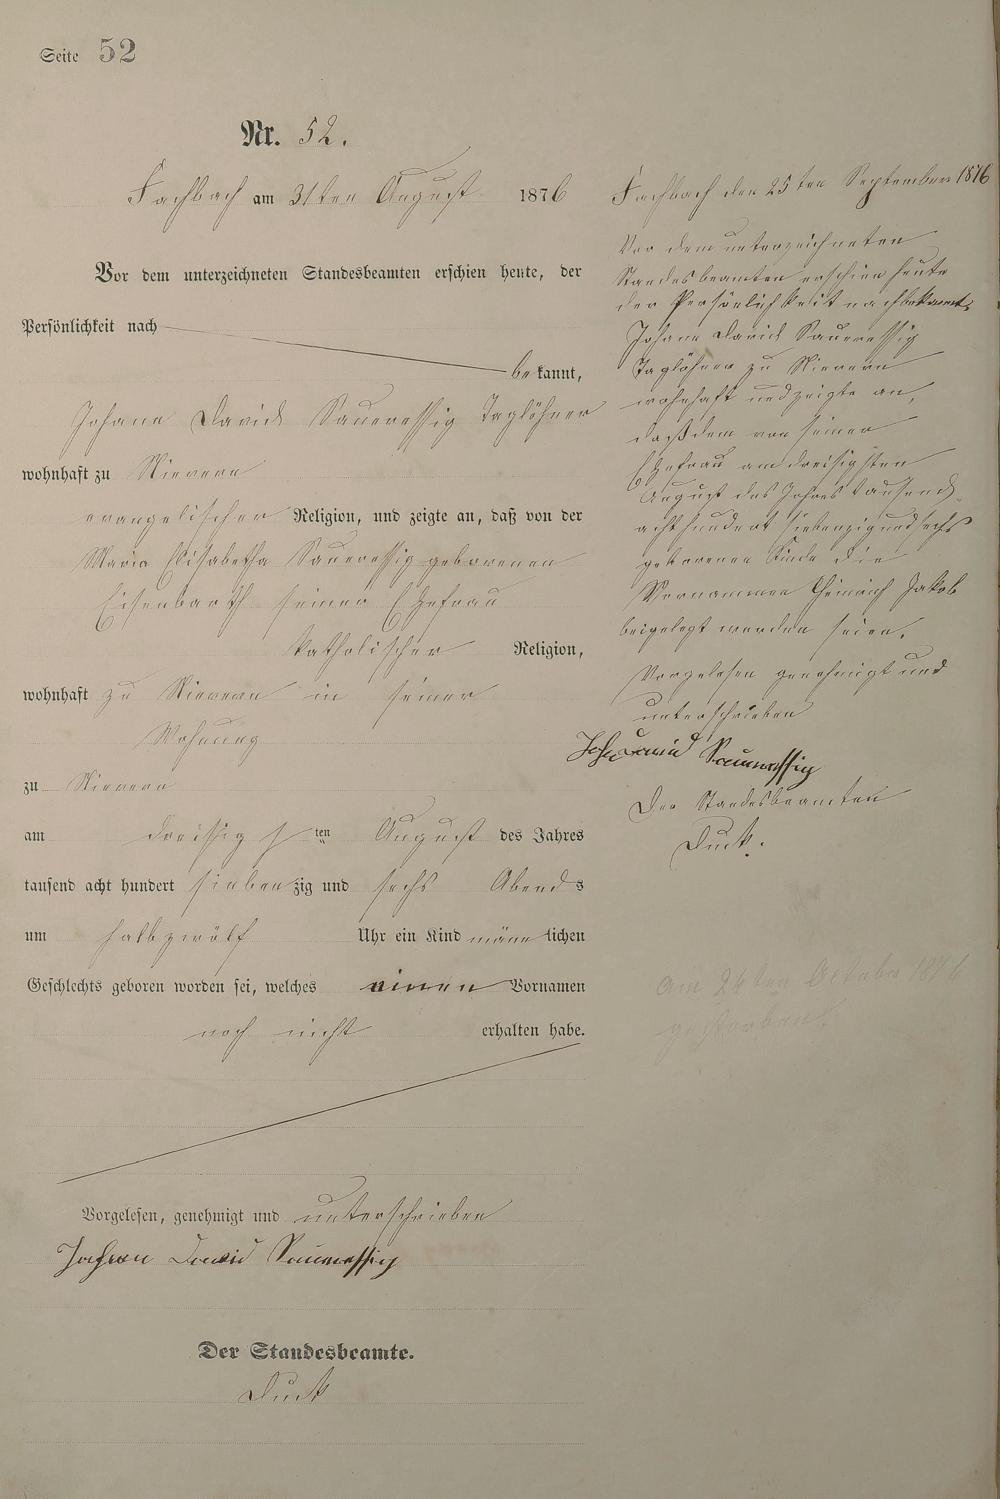 Seite 52
Nr. 52.
Fachbach am 31ten August 1876
Vor dem unterzeichneten Standesbeamten erschien heute, der
Persönlichkeit nach
bekannt,
Johann David Saueressig Taglöhner
wohnhaft zu Nievern
evangelischer Religion, und zeigte an, daß von der
Maria Elisabetha Saueressig geborenen
Eisenbarth seiner Ehefrau
katholischer Religion,
wohnhaft zu Nievern in seiner
Wohnung
zu Nievern
am dreissigsten August des Jahres
tausend acht hundert siebenzig und sechs Abends
um halbzwölf Uhr ein Kind männlichen
Geschlechts geboren worden sei, welches einen Vornamen
noch nicht erhalten habe.
Vorgelesen, genehmigt und unterschrieben
Johann David Saueressig
Der Standesbeamte.
Duck
Fachbach den 25ten September 1876
Vor dem unterzeichneten
Standesbeamten erschien heute
der Persönlichkeit nach bekannt,
Johann David Saueressig
Taglöhner zu Nievern
wohnhaft und zeigte an,
daß dem von seiner
Ehefrau am dreisigsten
August des Jahres tausend
achthundert siebenzig und sechs
geborenen Kinde die
Vornammen Heinrich Jakob
beigelegt worden seien.
Vorgelesen genehmigt und
unterschrieben
Joh David Saueressig
Der Standesbeamten
Duck.
am 24ten October 1876
gestorben.